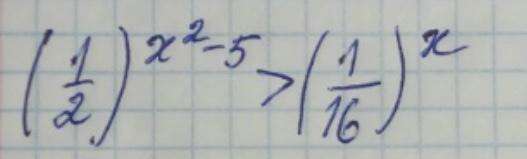 (1/2)^(x²-5) > (1/16)^x